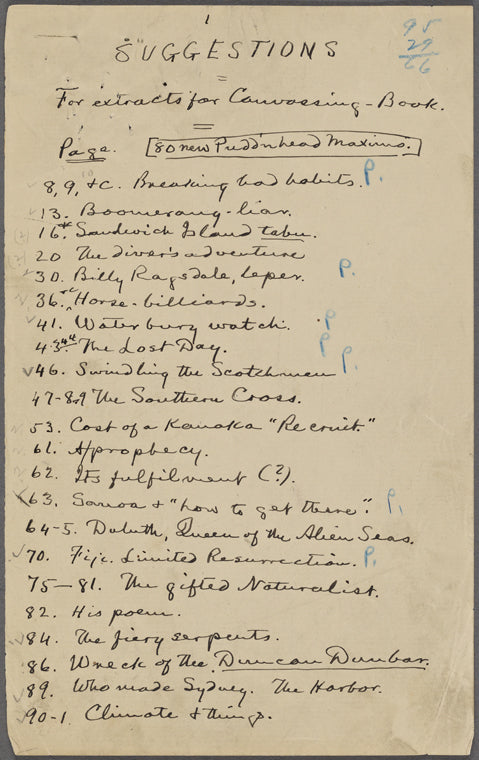 1
SUGGESTIONS
95
29
66
For extracts for Canvassing-Book.
Page. [80 new Pudd'nhead Maxims.]
8, 9, &c. Breaking bad habits. P.
13. Boomerang-liar.
16. Sandwich Island tabu.
20 The diver's adventure
30. Billy Ragsdale, leper. P.
36. Horse-billiards.
41. Waterbury watch. P
43 The Lost Day. P
46. Swindling the Scotchmen P.
47-8, 9 The Southern Cross.
53. Cost of a Kanaka "Recruit."
61. A prophecy.
62. Its fulfilment (?).
63. Samoa & "how to get there". P.
64-5. Duluth, Queen of the Alien Seas.
70. Fiji. Limited Resurrection. P.
75—81. The gifted Naturalist.
82. His poem.
84. The fiery serpents.
86. Wreck of the Duncan Dunbar.
89. Who made Sydney. The Harbor.
90-1. Climate & things.